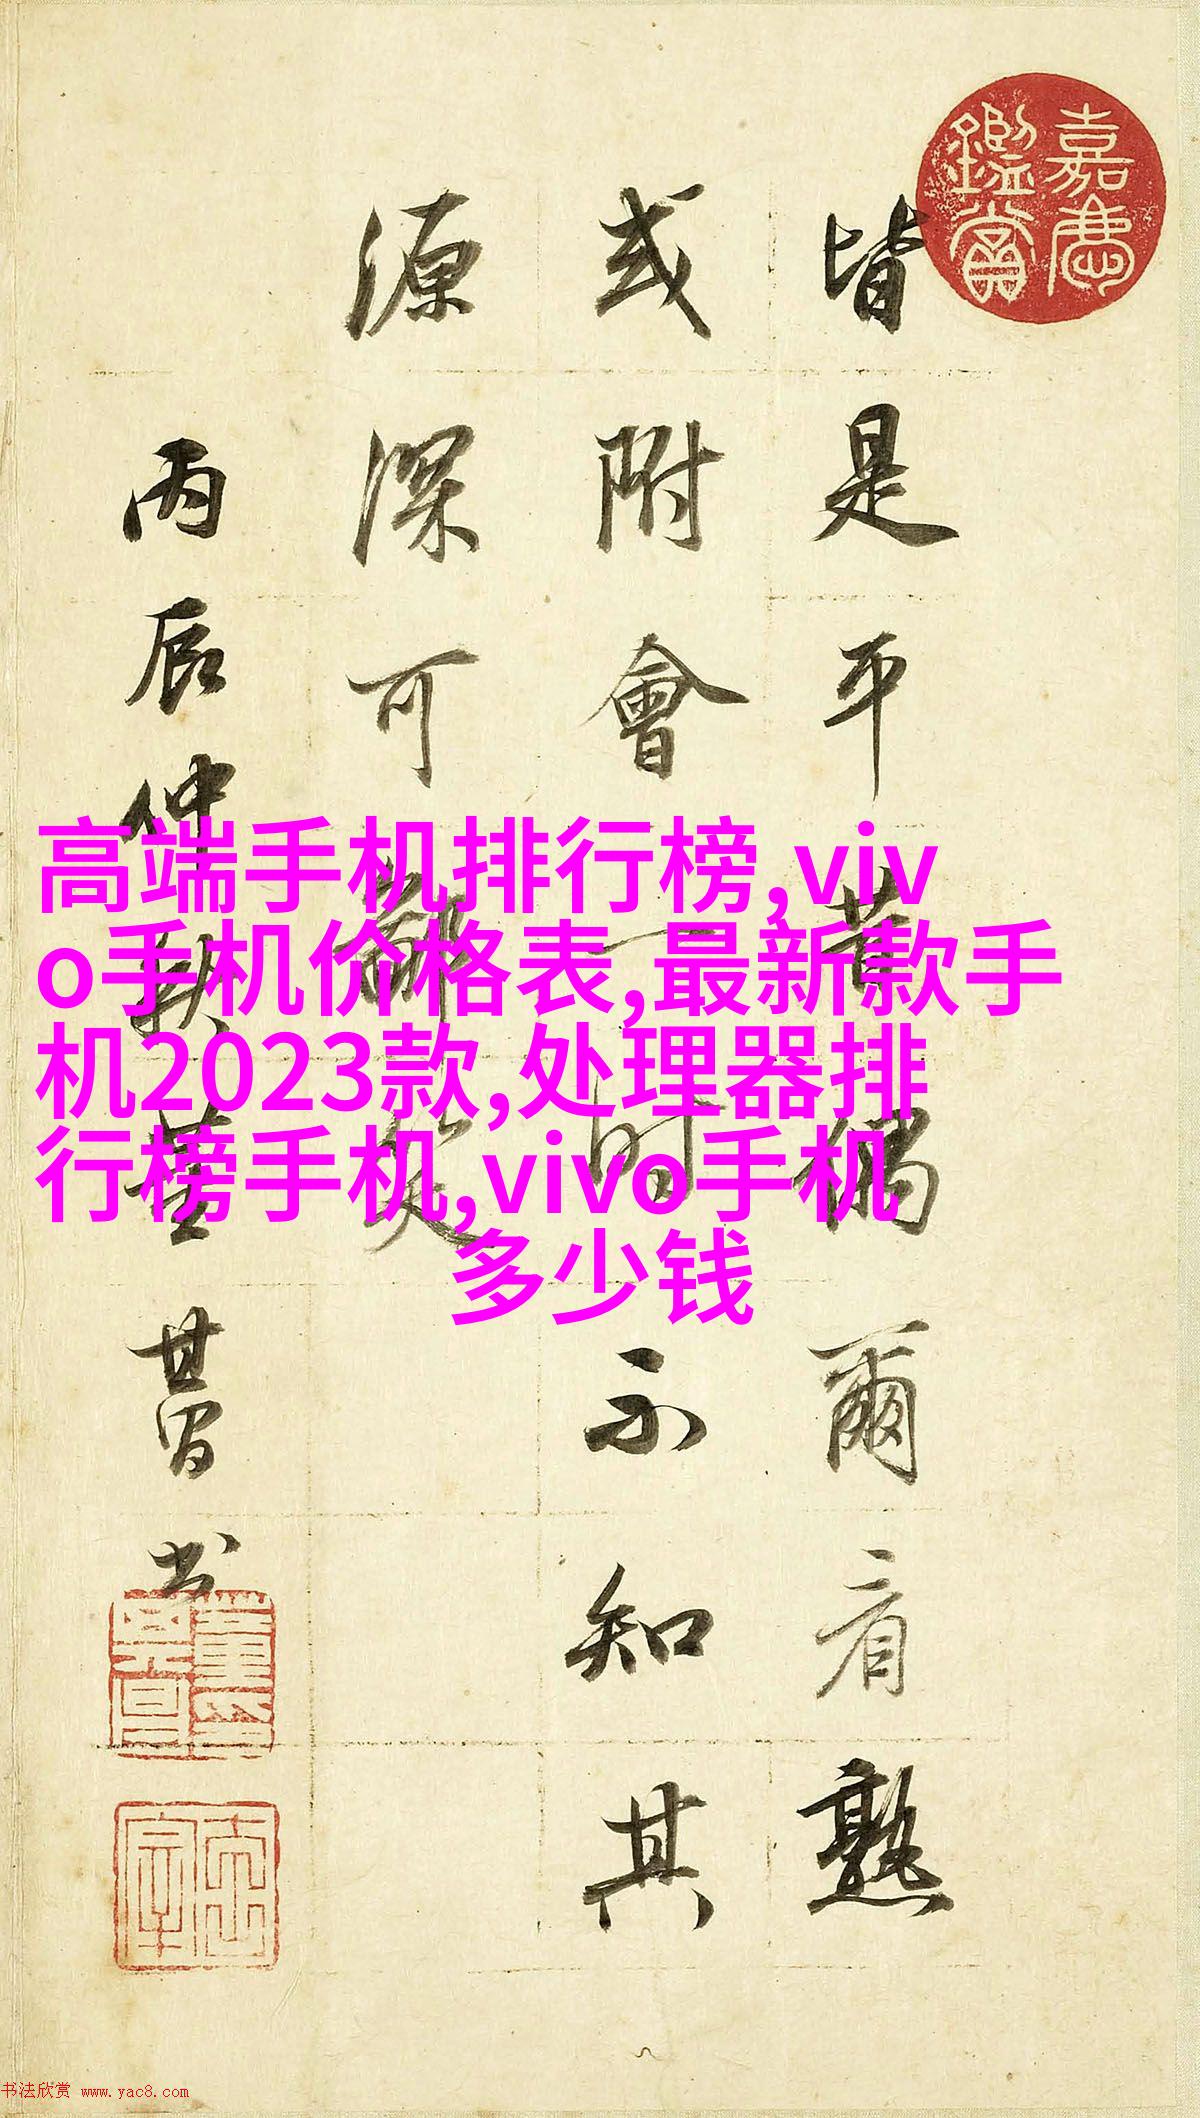 嘉慶
鑑賞
皆是平昔獨爾看熟
或附會一時不知其
源深可鄙笑
丙辰仲秋董其昌書
高端手机排行榜,viv
o手机价格表,最新款手
机2023款,处理器排
行榜手机,vivo手机
多少钱
书法欣赏 www.yac8.com